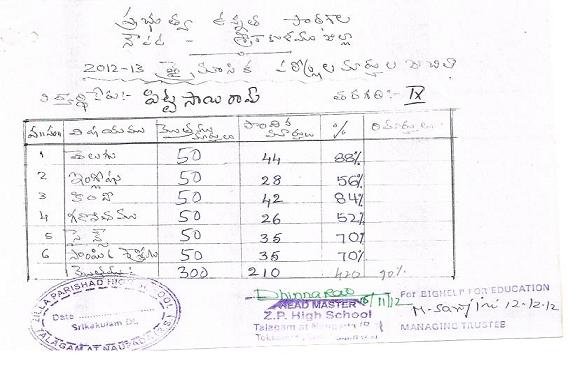 ప్రభుత్వ ఉన్నత పాఠశాల
నౌపడ - శ్రీకాకుళము జిల్లా
2012-13 త్రైమాసిక పరీక్షల మార్కుల జాబితా
విద్యార్థి పేరు:- పిట్ట సాయిరామ్ తరగతి:- IX
వ.సం. విషయము మొత్తము మార్కులు పొందిన మార్కులు % రిమార్కులు
1 తెలుగు 50 44 88%
2 ఇంగ్లీషు 50 28 56%
3 హిందీ 50 42 84%
4 గణితము 50 26 52%
5 సైన్స్ 50 35 70%
6 సాంఘిక శాస్త్రము 50 35 70%
మొత్తము: 300 210 420 70%
ZILLA PARISHAD HIGH SCHOOL
Date
Srikakulam Dt.
TALAGAM AT NAUPADA (R.S.)
16/11/12
HEAD MASTER
Z.P. High School
Talagam at
For BIGHELP FOR EDUCATION
M. Sarojini 12-12-12
MANAGING TRUSTEE